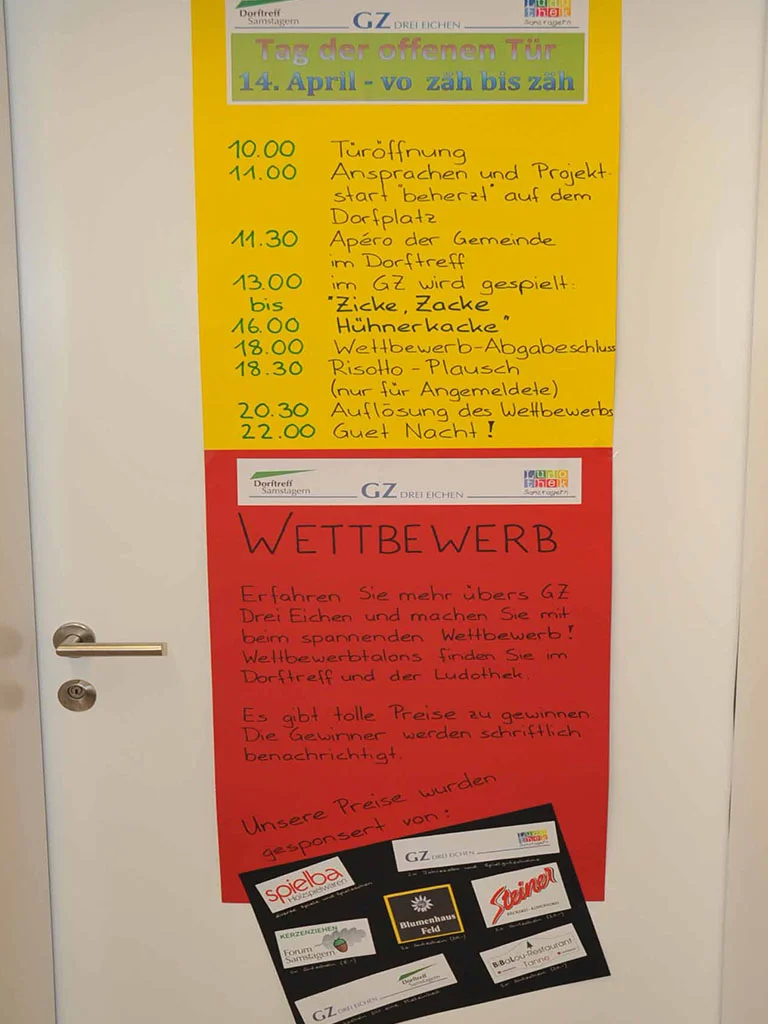 Dorftreff
Samstagern
GZ DREI EICHEN
Ludo
thek
Samstagern
Tag der offenen Tür
14. April - vo zäh bis zäh
10.00 Türöffnung
11.00 Ansprachen und Projekt-
start "beherzt" auf dem
Dorfplatz
11.30 Apéro der Gemeinde
im Dorftreff
13.00 im GZ wird gespielt:
bis "Zicke, Zacke
16.00 Hühnerkacke"
18.00 Wettbewerb-Abgabeschluss
18.30 Risotto - Plausch
(nur für Angemeldete)
20.30 Auflösung des Wettbewerbs
22.00 Guet Nacht!
Dorftreff
Samstagern
GZ DREI EICHEN
Ludo
thek
Samstagern
WETTBEWERB
Erfahren Sie mehr übers GZ
Drei Eichen und machen Sie mit
beim spannenden Wettbewerb!
Wettbewerbtalons finden Sie im
Dorftreff und der Ludothek.
Es gibt tolle Preise zu gewinnen.
Die Gewinner werden schriftlich
benachrichtigt.
Unsere Preise wurden
gesponsert von:
GZ DREI EICHEN
Ludo
thek
spielba
Holzspielwaren
Steiner
BÄCKEREI-KONDITOREI
Blumenhaus
Feld
KERZENZIEHEN
Forum
Samstagern
BiBaLou-Restaurant
Tanne
Dorftreff
Samstagern
GZ DREI EICHEN